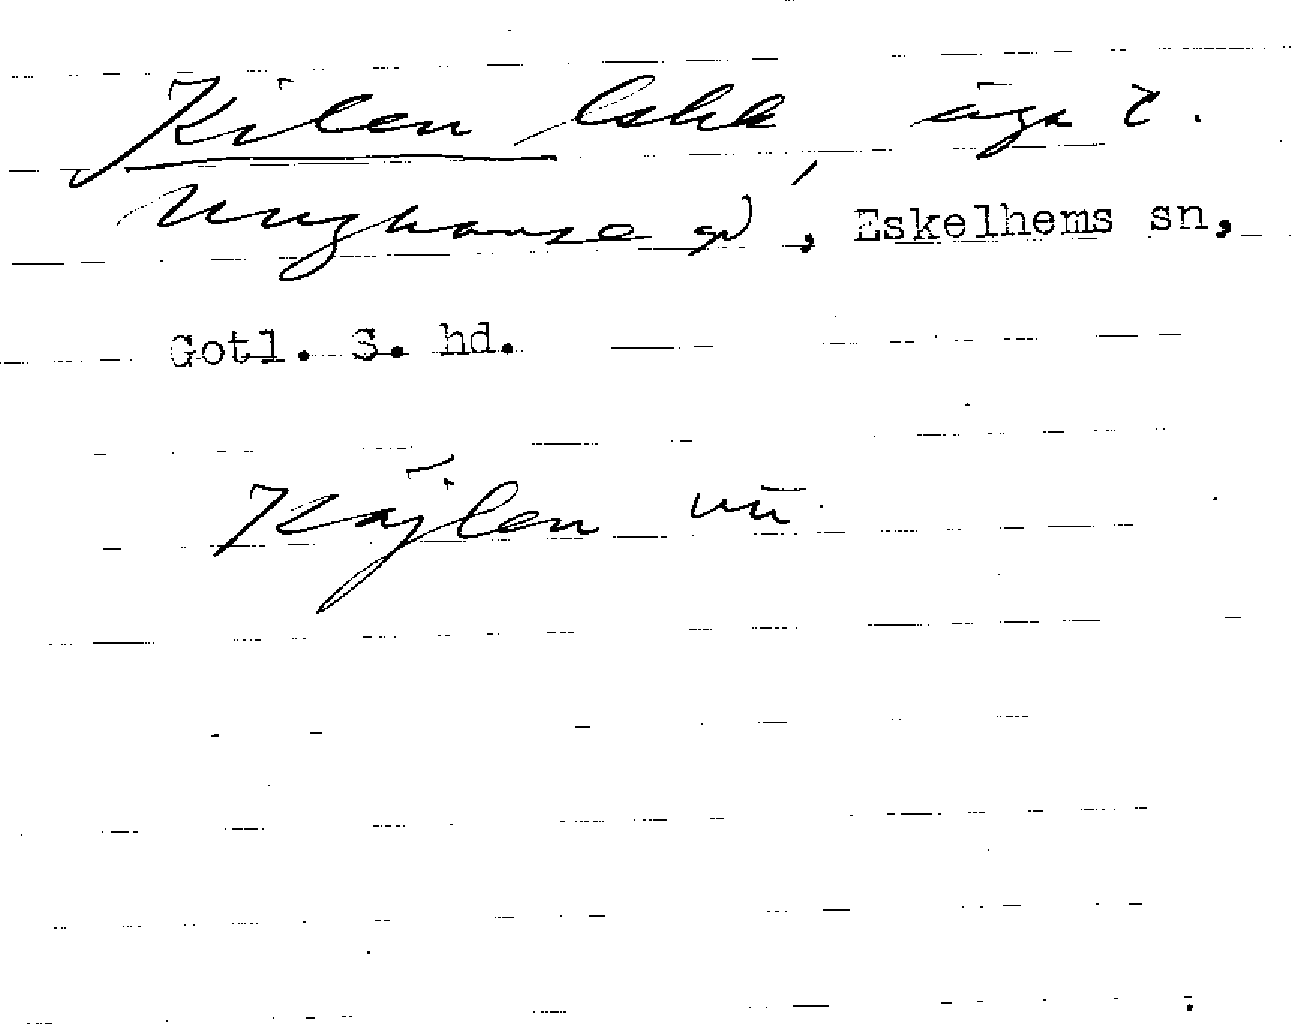 Kilen lskk äga t.
Unghanse gd, Eskelhems sn,
Gotl. S. hd.
Kájlen